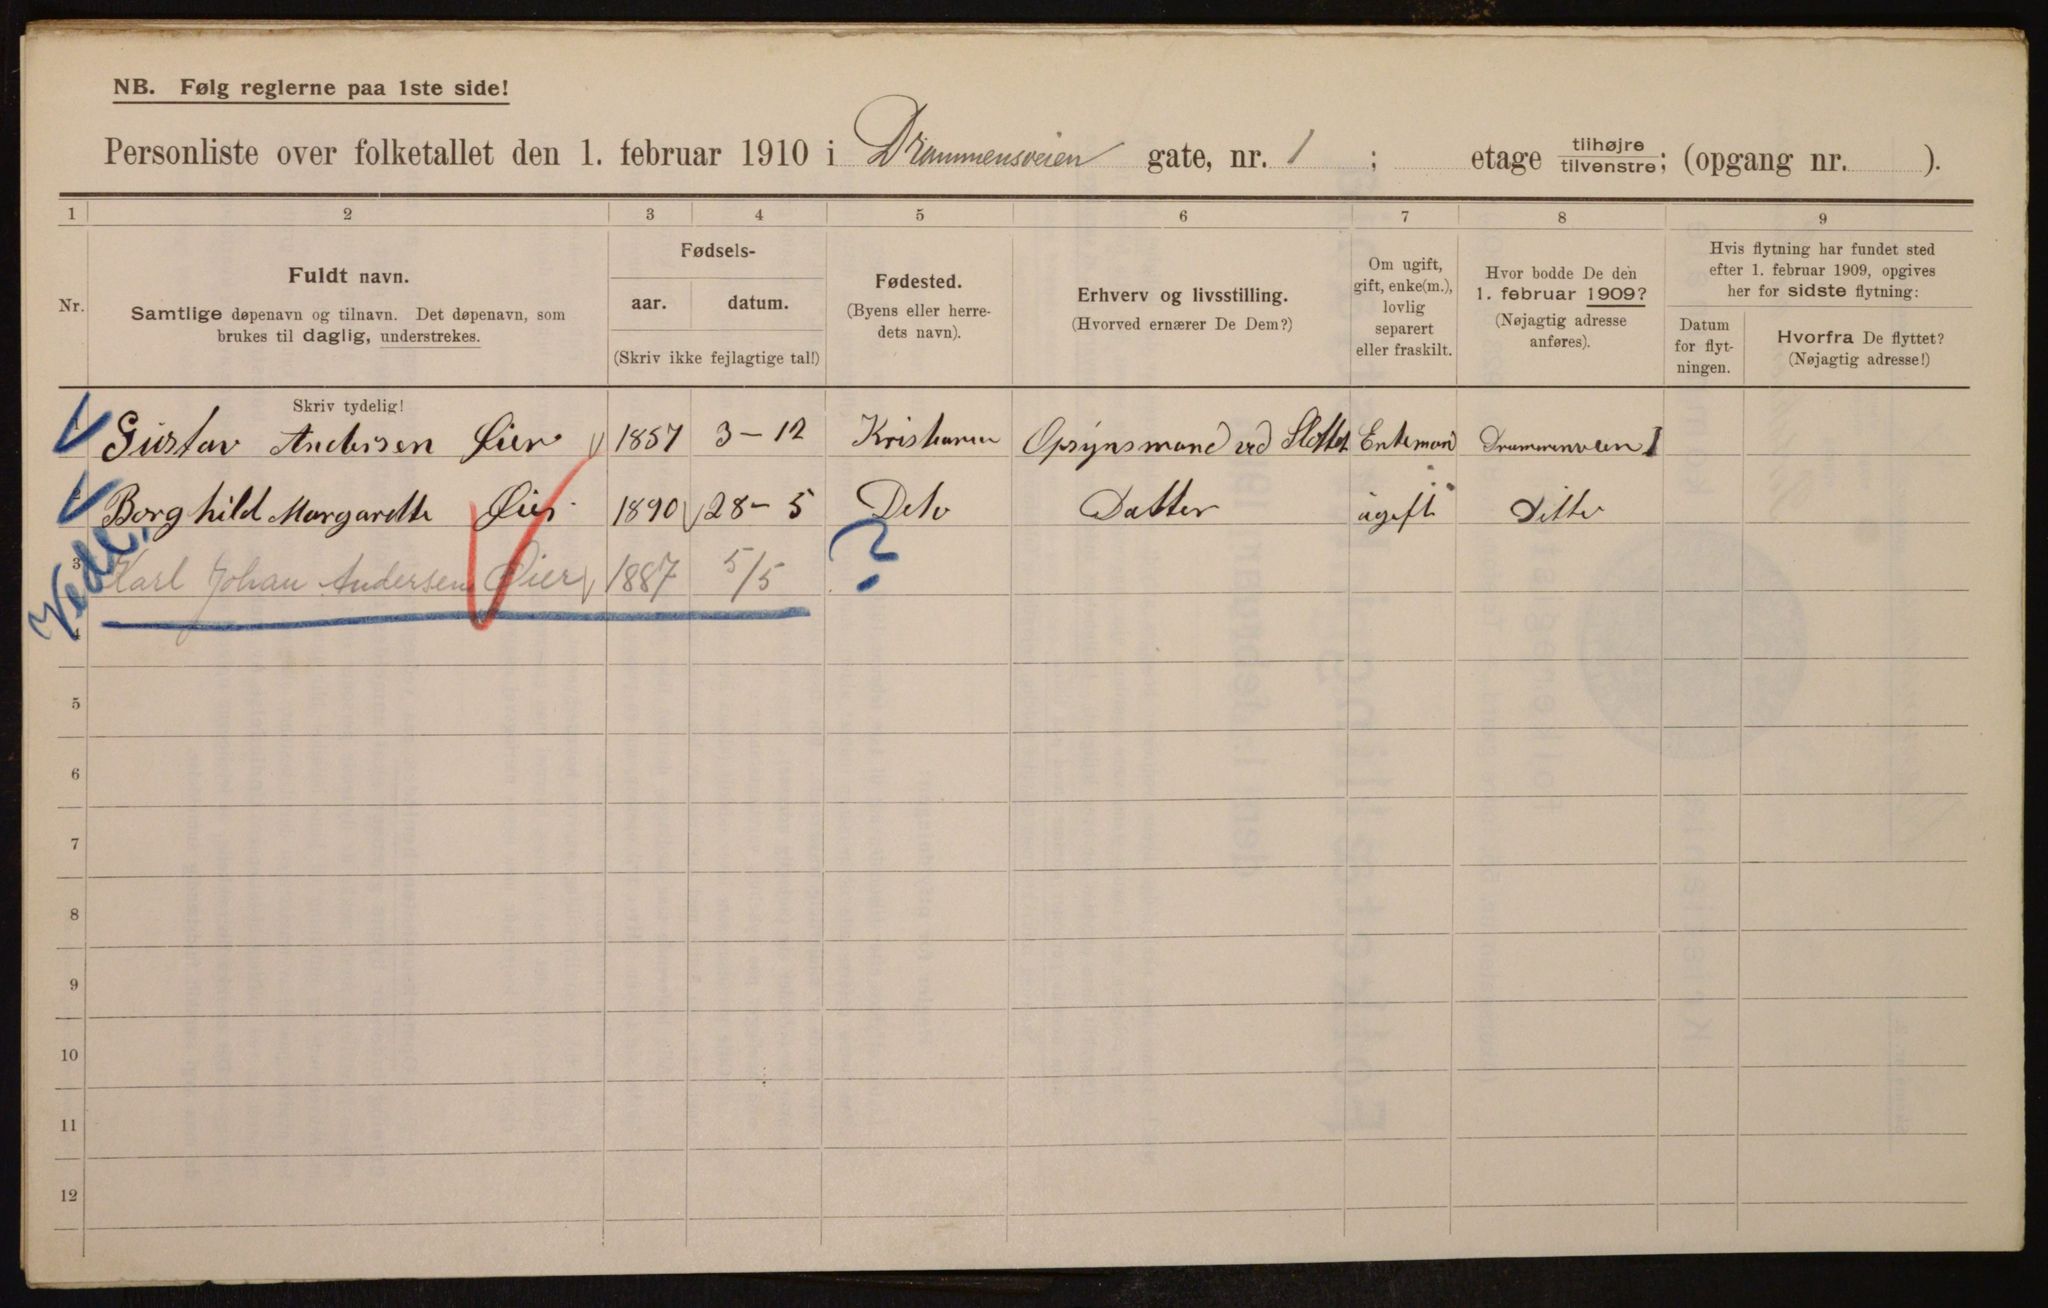 NB. Følg reglerne paa 1ste side!
Personliste over folketallet den 1. februar 1910 i Drammensveien gate, nr. 1 ; etage tilhøjre/tilvenstre; (opgang nr. ).
1 2 3 4 5 6 7 8 9
Nr.
Fuldt navn.
Samtlige døpenavn og tilnavn. Det døpenavn, som
brukes til daglig, understrekes.
Fødsels-
aar. datum.
(Skriv ikke fejlagtige tal!)
Fødested.
(Byens eller herre-
dets navn).
Erhverv og livsstilling.
(Hvorved ernærer De Dem?)
Om ugift,
gift, enke(m.),
lovlig
separert
eller fraskilt.
Hvor bodde De den
1. februar 1909?
(Nøjagtig adresse
anføres).
Hvis flytning har fundet sted
efter 1. februar 1909, opgives
her for sidste flytning:
Datum
for flyt-
ningen.
Hvorfra De flyttet?
(Nøjagtig adresse!)
Skriv tydelig!
Gustav Andersen Øier 1857 3-12 Opsynsmand ved Slottet Enkemand 1
Borghild Margarethe Øier 1890 28-5 Deto Datter ugift Ditto
3 Karl Johan Andersen Øier 1887 5/5 ?
5
6
7
8
9
10
11
12